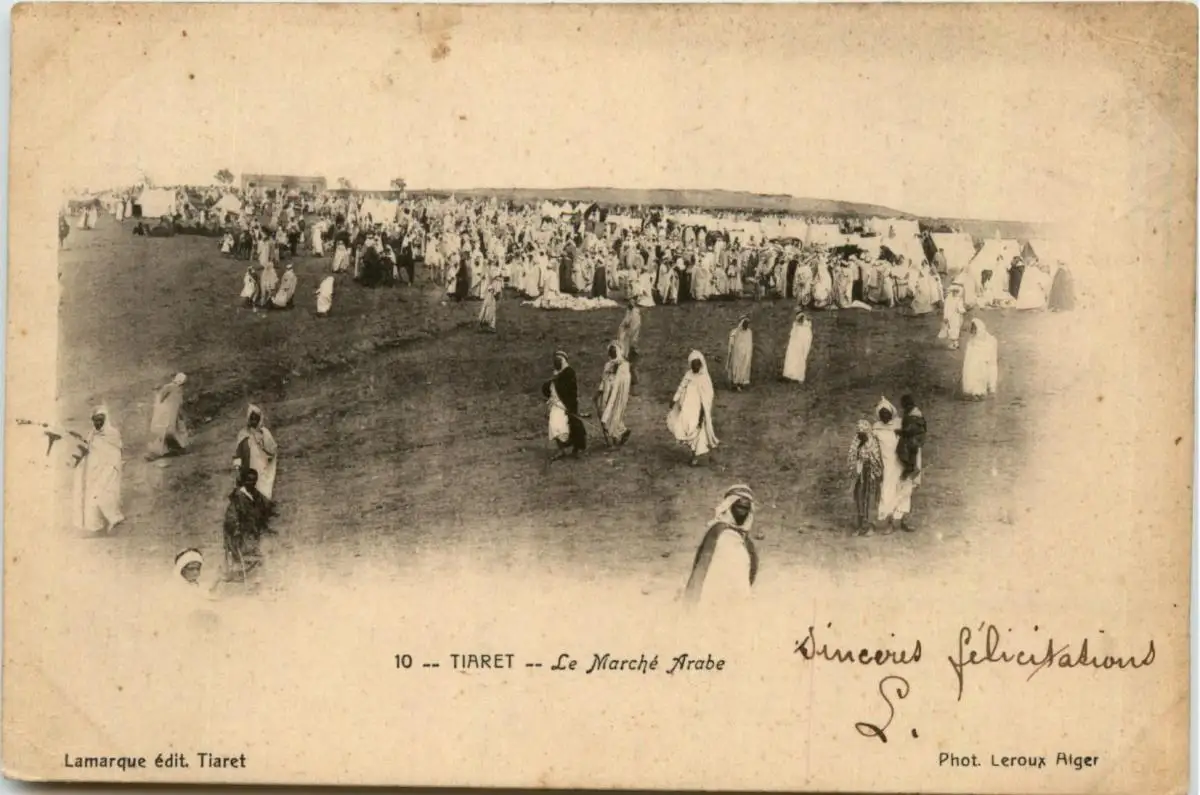 10 -- TIARET -- Le Marché Arabe
Sinceres félicitations
L.
Lamarque édit. Tiaret
Phot. Leroux Alger